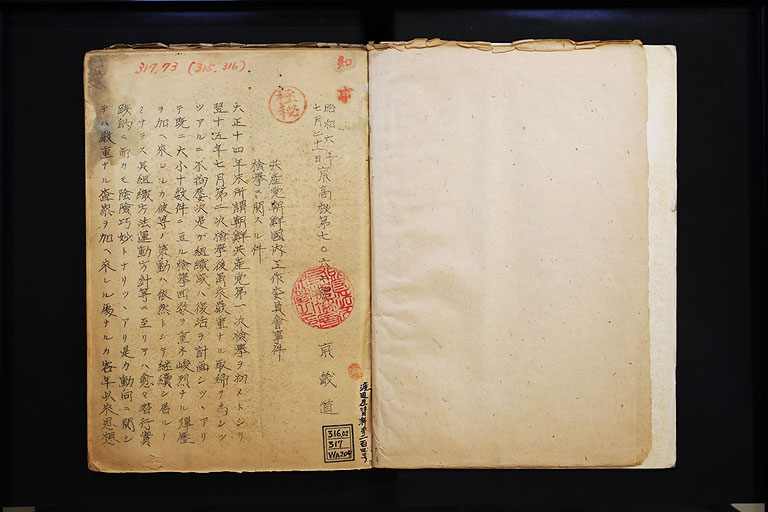 317.73 (315.316)
知事
極秘
昭和六年
七月二十日京高秘第七〇六
京畿道
共産党朝鮮国内工作委員会事件
検挙ニ関スル件
大正十四年末所謂朝鮮共産党第一次検挙ヲ初メトシテ
翌十五年七月第二次検挙後甫来厳重ナル取締ヲ為シツ
ツアルニ不拘屡次是ガ組織或ハ復活ヲ計画シツヽアリ
テ既ニ大小十数件ニ亘ル検挙回数ヲ重ネ峻烈ナル弾圧
ヲ加ヘ来レルカ彼等ノ策動ハ依然トシテ継続シ居ルノ
ミナラス其組織方法運動方針等ニ至リテハ愈々潜行実
践的ニ而カモ陰険巧妙トナリツヽアリ是カ動向ニ関シ
テハ厳重ナル査察ヲ加ヘ来レル処ナルカ客年以来思想
316.02
317
WA204